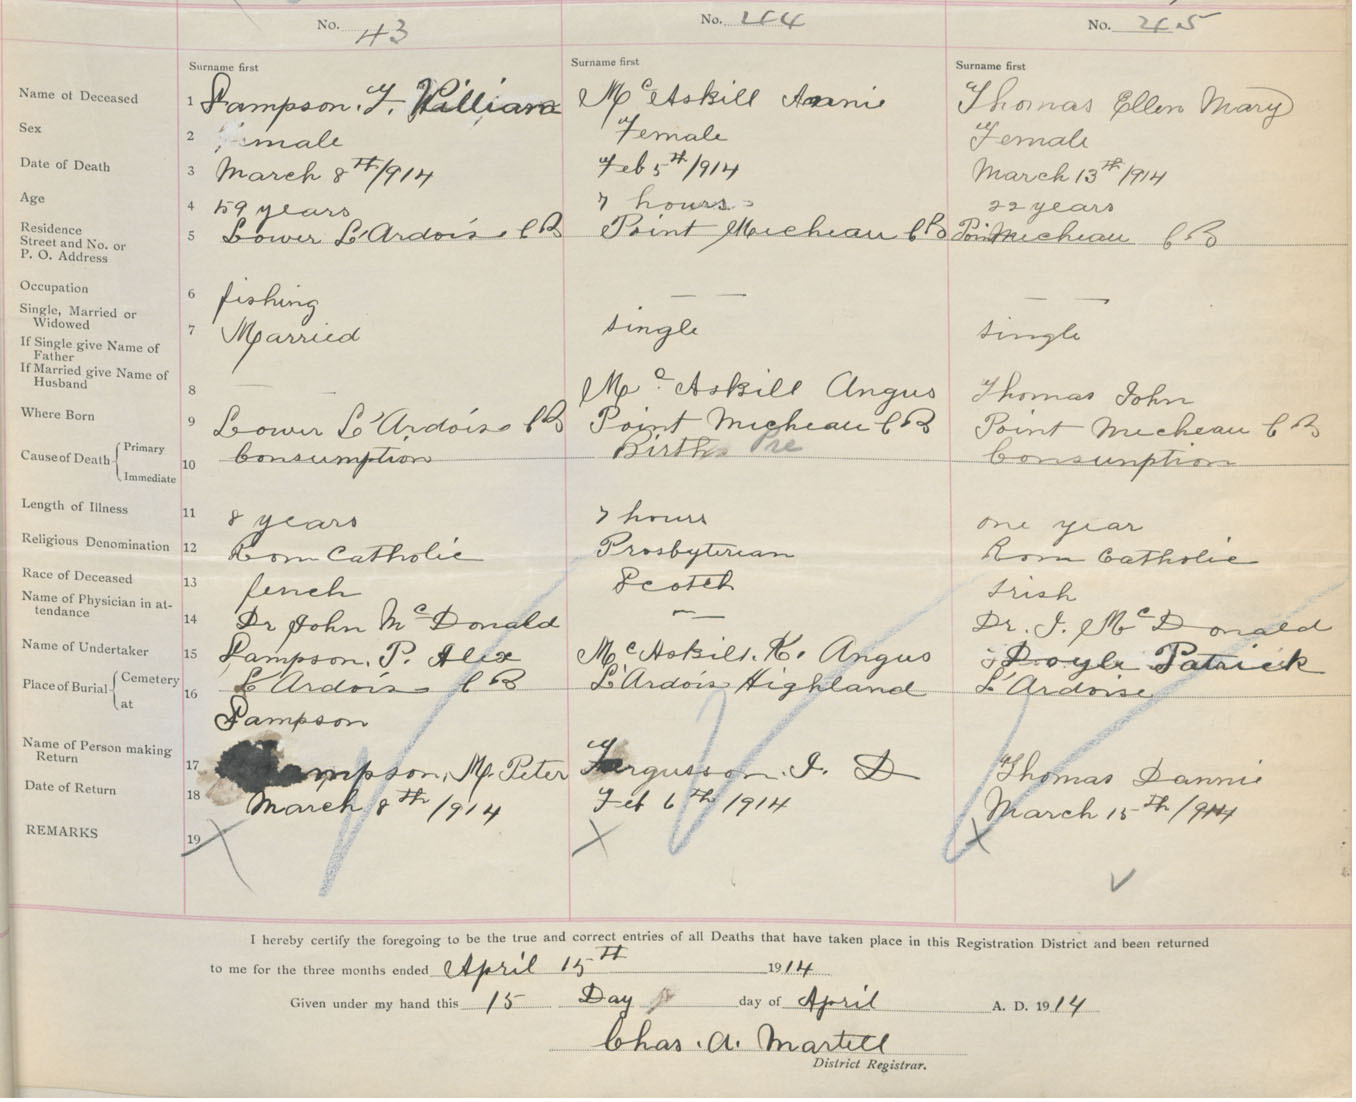 No. 43 No. 44 No. 45
Surname first Surname first Surname first
Name of Deceased 1 Sampson. F. William McAskill Annie Thomas Ellen Mary
Sex 2 Female Female Female
Date of Death 3 March 8th/914 Feb 5th/914 March 13th/914
Age 4 59 years 7 hours 22 years
Residence
Street and No. or P. O. Address 5 Lower L'Ardois CB Point Micheau CB Point Micheau CB
Occupation 6 fishing — — — —
Single, Married or Widowed 7 Married single single
If Single give Name of Father
If Married give Name of Husband 8 — — McAskill Angus Thomas John
Where Born 9 Lower L'Ardois CB Point Micheau CB Point Micheau CB
Cause of Death Primary Immediate 10 Consumption Birth Pre Consumption
Length of Illness 11 8 years 7 hours one year
Religious Denomination 12 Rom Catholic Prosbyterian Rom Catholic
Race of Deceased 13 fench Scotch Irish
Name of Physician in attendance 14 Dr John McDonald — Dr. J. McDonald
Name of Undertaker 15 Sampson. P. Alex McAskill. K. Angus Doyle Patrick
Place of Burial Cemetery at 16 L'Ardois CB L'Ardois Highland L'Ardoise
Sampson
Name of Person making Return 17 Sampson, M. Peter Fergusson. J. D Thomas Dannie
Date of Return 18 March 8th/914 Feb 6th/914 March 15th/914
REMARKS 19 X X X
I hereby certify the foregoing to be the true and correct entries of all Deaths that have taken place in this Registration District and been returned
to me for the three months ended April 15th 1914
Given under my hand this 15 Day day of April A. D. 1914
Chas. A. Martell
District Registrar.